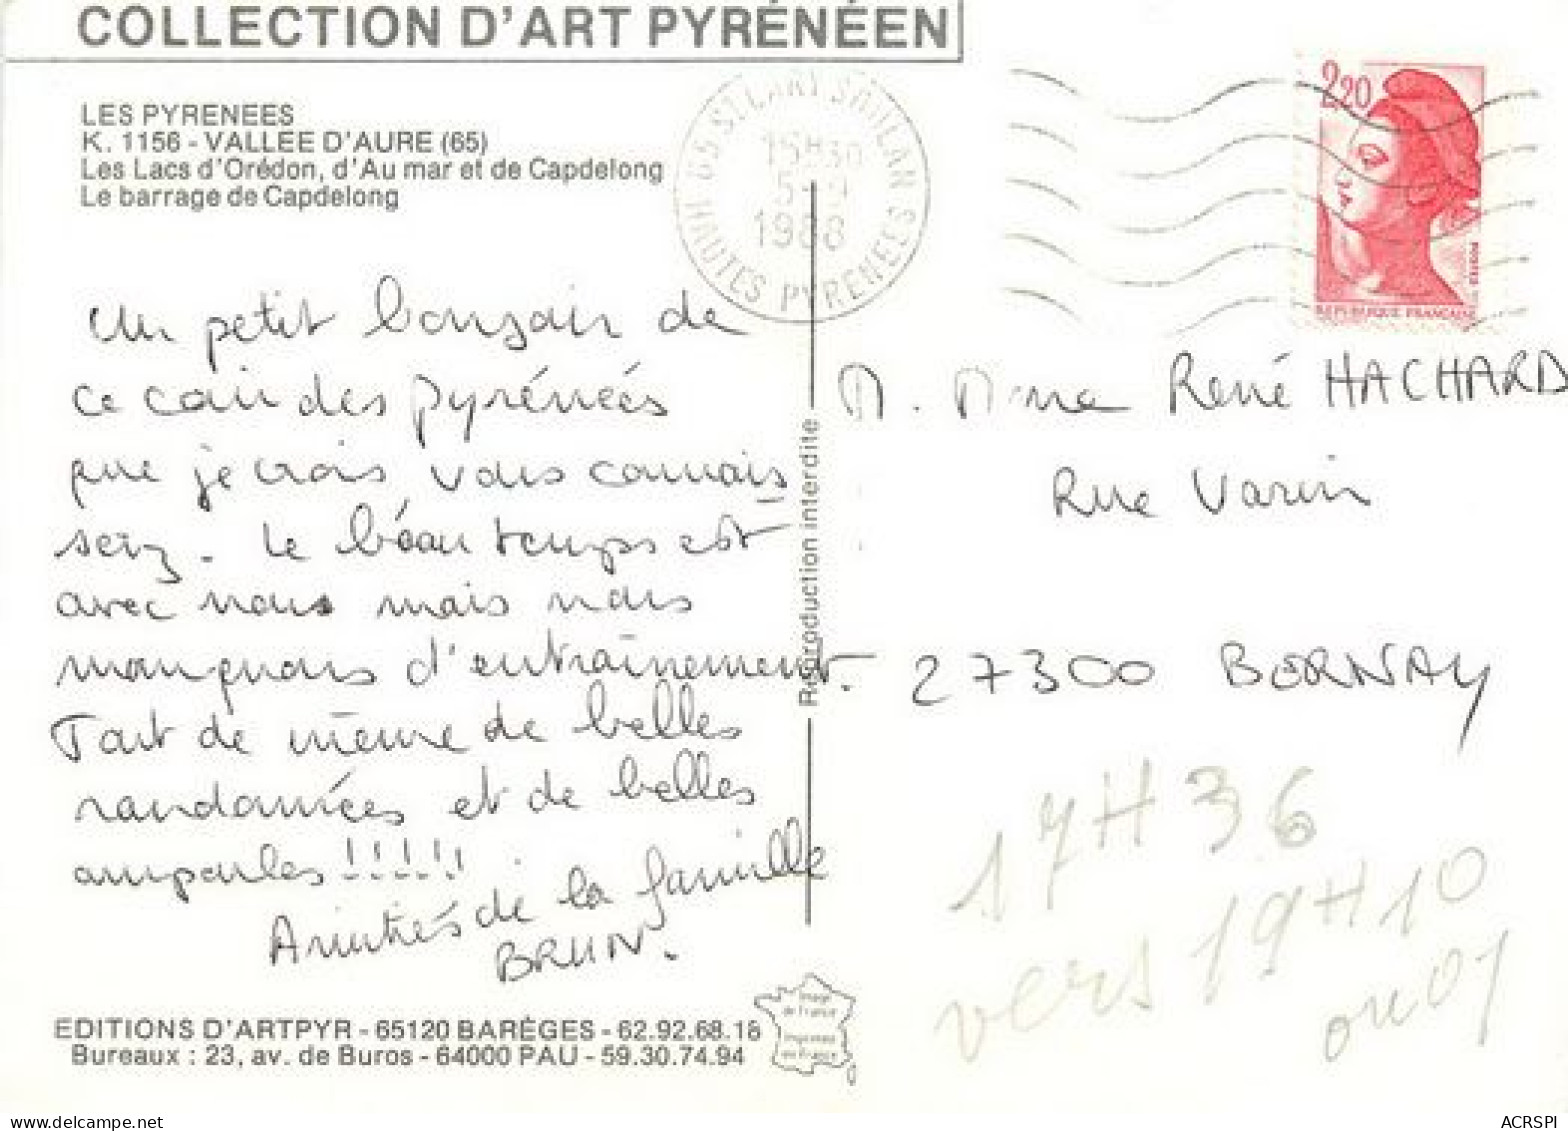 COLLECTION D'ART PYRÉNÉEN
LES PYRENEES
K. 1156 - VALLEE D'AURE (65)
Les Lacs d'Orédon, d'Au mar et de Capdelong
Le barrage de Capdelong
65 ST LARY SOULAN
15H30
5-9
1988
HAUTES PYRENEES
2,20
POSTES
REPUBLIQUE FRANÇAISE
Un petit bonjour de
ce coin des pyrénées
que je crois vous connais
sez. Le beau temps est
avec nous mais nous
manquons d'entraînement.
Tout de même de belles
randonnées et de belles
ampoules !!!!!
Amitiés de la famille
BRUN.
Reproduction interdite
M. Mme René HACHARD
Rue Varin
27300 BERNAY
17H36
vers 19H10
ou 07
EDITIONS D'ARTPYR - 65120 BARÈGES - 62.92.68.16
Bureaux : 23, av. de Buros - 64000 PAU - 59.30.74.94
Image
de France
Imprimée
en France
delcampe.net
ACRSPI